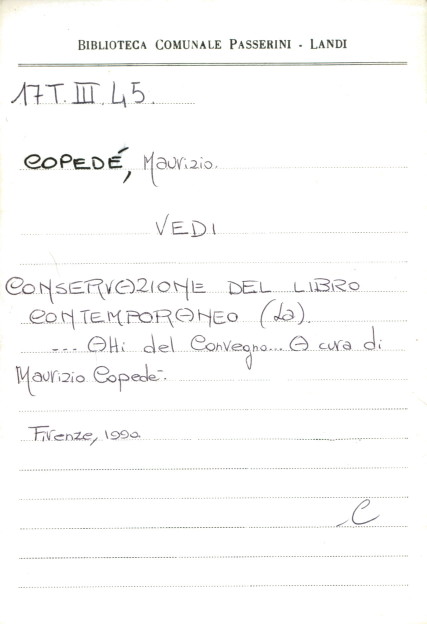 BIBLIOTECA COMUNALE PASSERINI - LANDI
17T.III.45.
COPEDÉ, Maurizio.
VEDI
CONSERVAZIONE DEL LIBRO
CONTEMPORANEO (La).
... Atti del Convegno... A cura di
Maurizio Copedè.
Firenze, 1990.
C